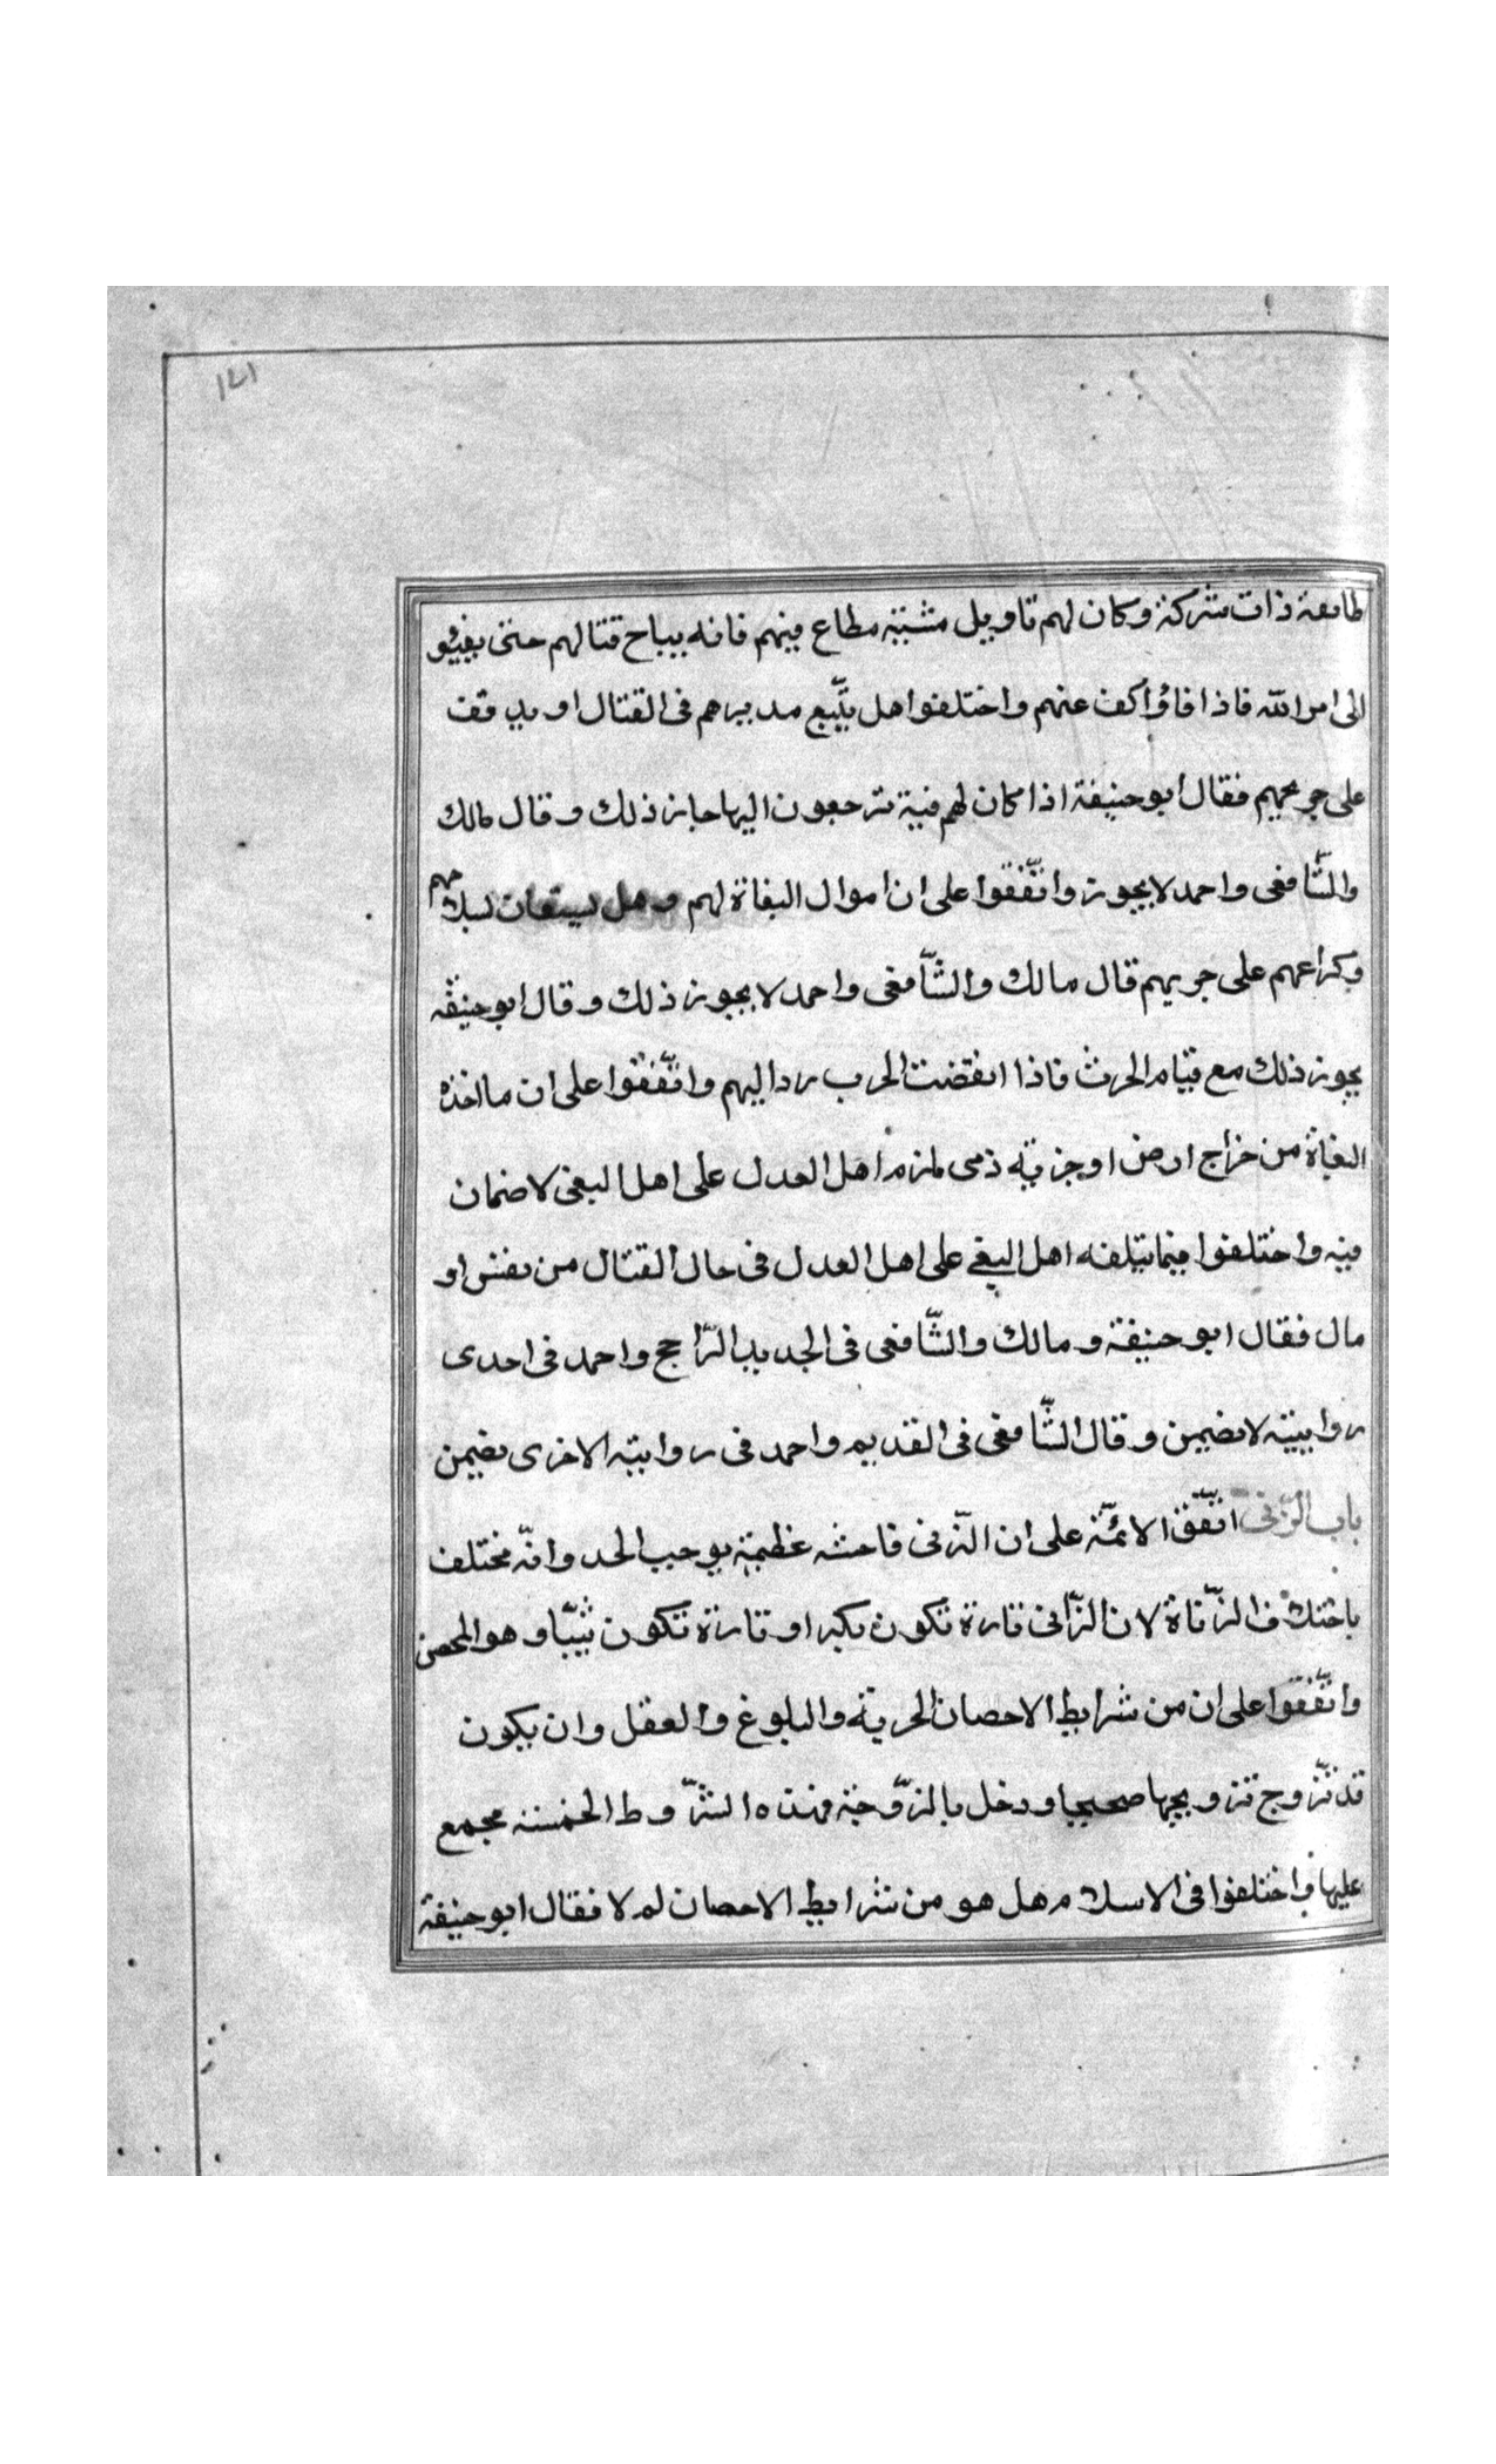 ١٤١
طايفة ذات شركة وكان لهم تاويل مشتبه مطاع فيهم فانه يباح قتالهم حتى يفيؤ
الى امر الله فاذا فاؤا كف عنهم واختلفوا هل يتّبع مدبرهم فى القتال او يدقف
على جريحهم فقال ابو حنيفة اذا كان لهم فية ترجعون اليها جاز ذلك وقال مالك
والشّافعى واحمد لا يجوز واتّفقوا على ان اموال البغاة لهم وهل يستعان بسلاحهم
وكراعهم على حربهم قال مالك والشّافعى واحمد لا يجوز ذلك وقال ابو حنيفه
يجوز ذلك مع قيام الحرث فاذا انقضت الحرب رد اليهم واتّفقوا على ان ما اخذه
البغاة من خراج ارض او جزية ذمى لمزم اهل العدل على اهل البغى لا ضمان
فيه واختلفوا فيما يتلفه اهل البغى على اهل العدل فى حال القتال من نفس او
مال فقال ابو حنيفة ومالك والشّافعى فى الجديد الرّاجح واحمد فى احدى
روايتيه لا يضمن وقال الشّافعى فى القديم واحمد فى روايته الاخرى يضمن
باب الزّنى اتّفق الائمّة على ان الزّنى فاحشه عظيمة يوجب الحد وانّه مختلف
باختلاف الزّناة لان الزّانى تارة تكون بكرا وتارة تكون ثيّبا وهو المحصن
واتّفقوا على ان من شرايط الاحصان الحرية والبلوغ والعقل وان يكون
قد تزّوج تزويجها صحيحا ودخل بالزّوجة فهذه الشّروط الخمسة مجمع
عليها واختلفوا فى الاسلام هل هو من شرايط الاحصان لم لا فقال ابو حنيفة